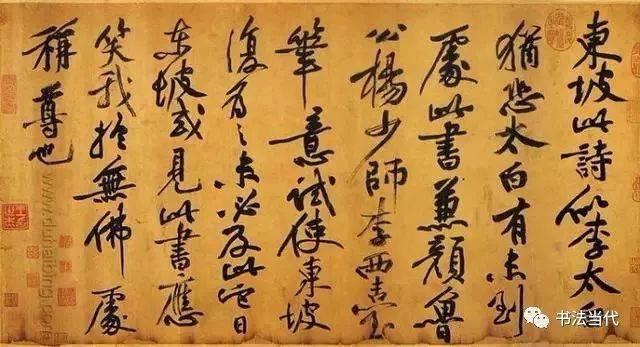 東坡此詩似李太白
猶恐太白有未到
處此書兼顏魯
公楊少師李西臺
筆意試使東坡
復為之未必及此它日
東坡或見此書應
笑我於無佛處
稱尊也
书法当代